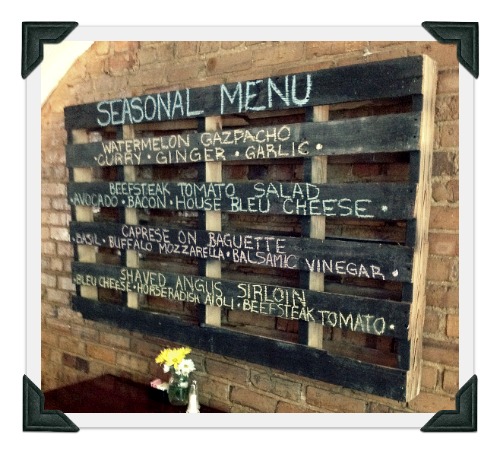 SEASONAL MENU
WATERMELON GAZPACHO
•CURRY • GINGER • GARLIC •
BEEFSTEAK TOMATO SALAD
•AVOCADO • BACON • HOUSE BLEU CHEESE •
CAPRESE ON BAGUETTE
•BASIL • BUFFALO MOZZARELLA • BALSAMIC VINEGAR •
SHAVED ANGUS SIRLOIN
•BLEU CHEESE • HORSERADISH AIOLI • BEEFSTEAK TOMATO •